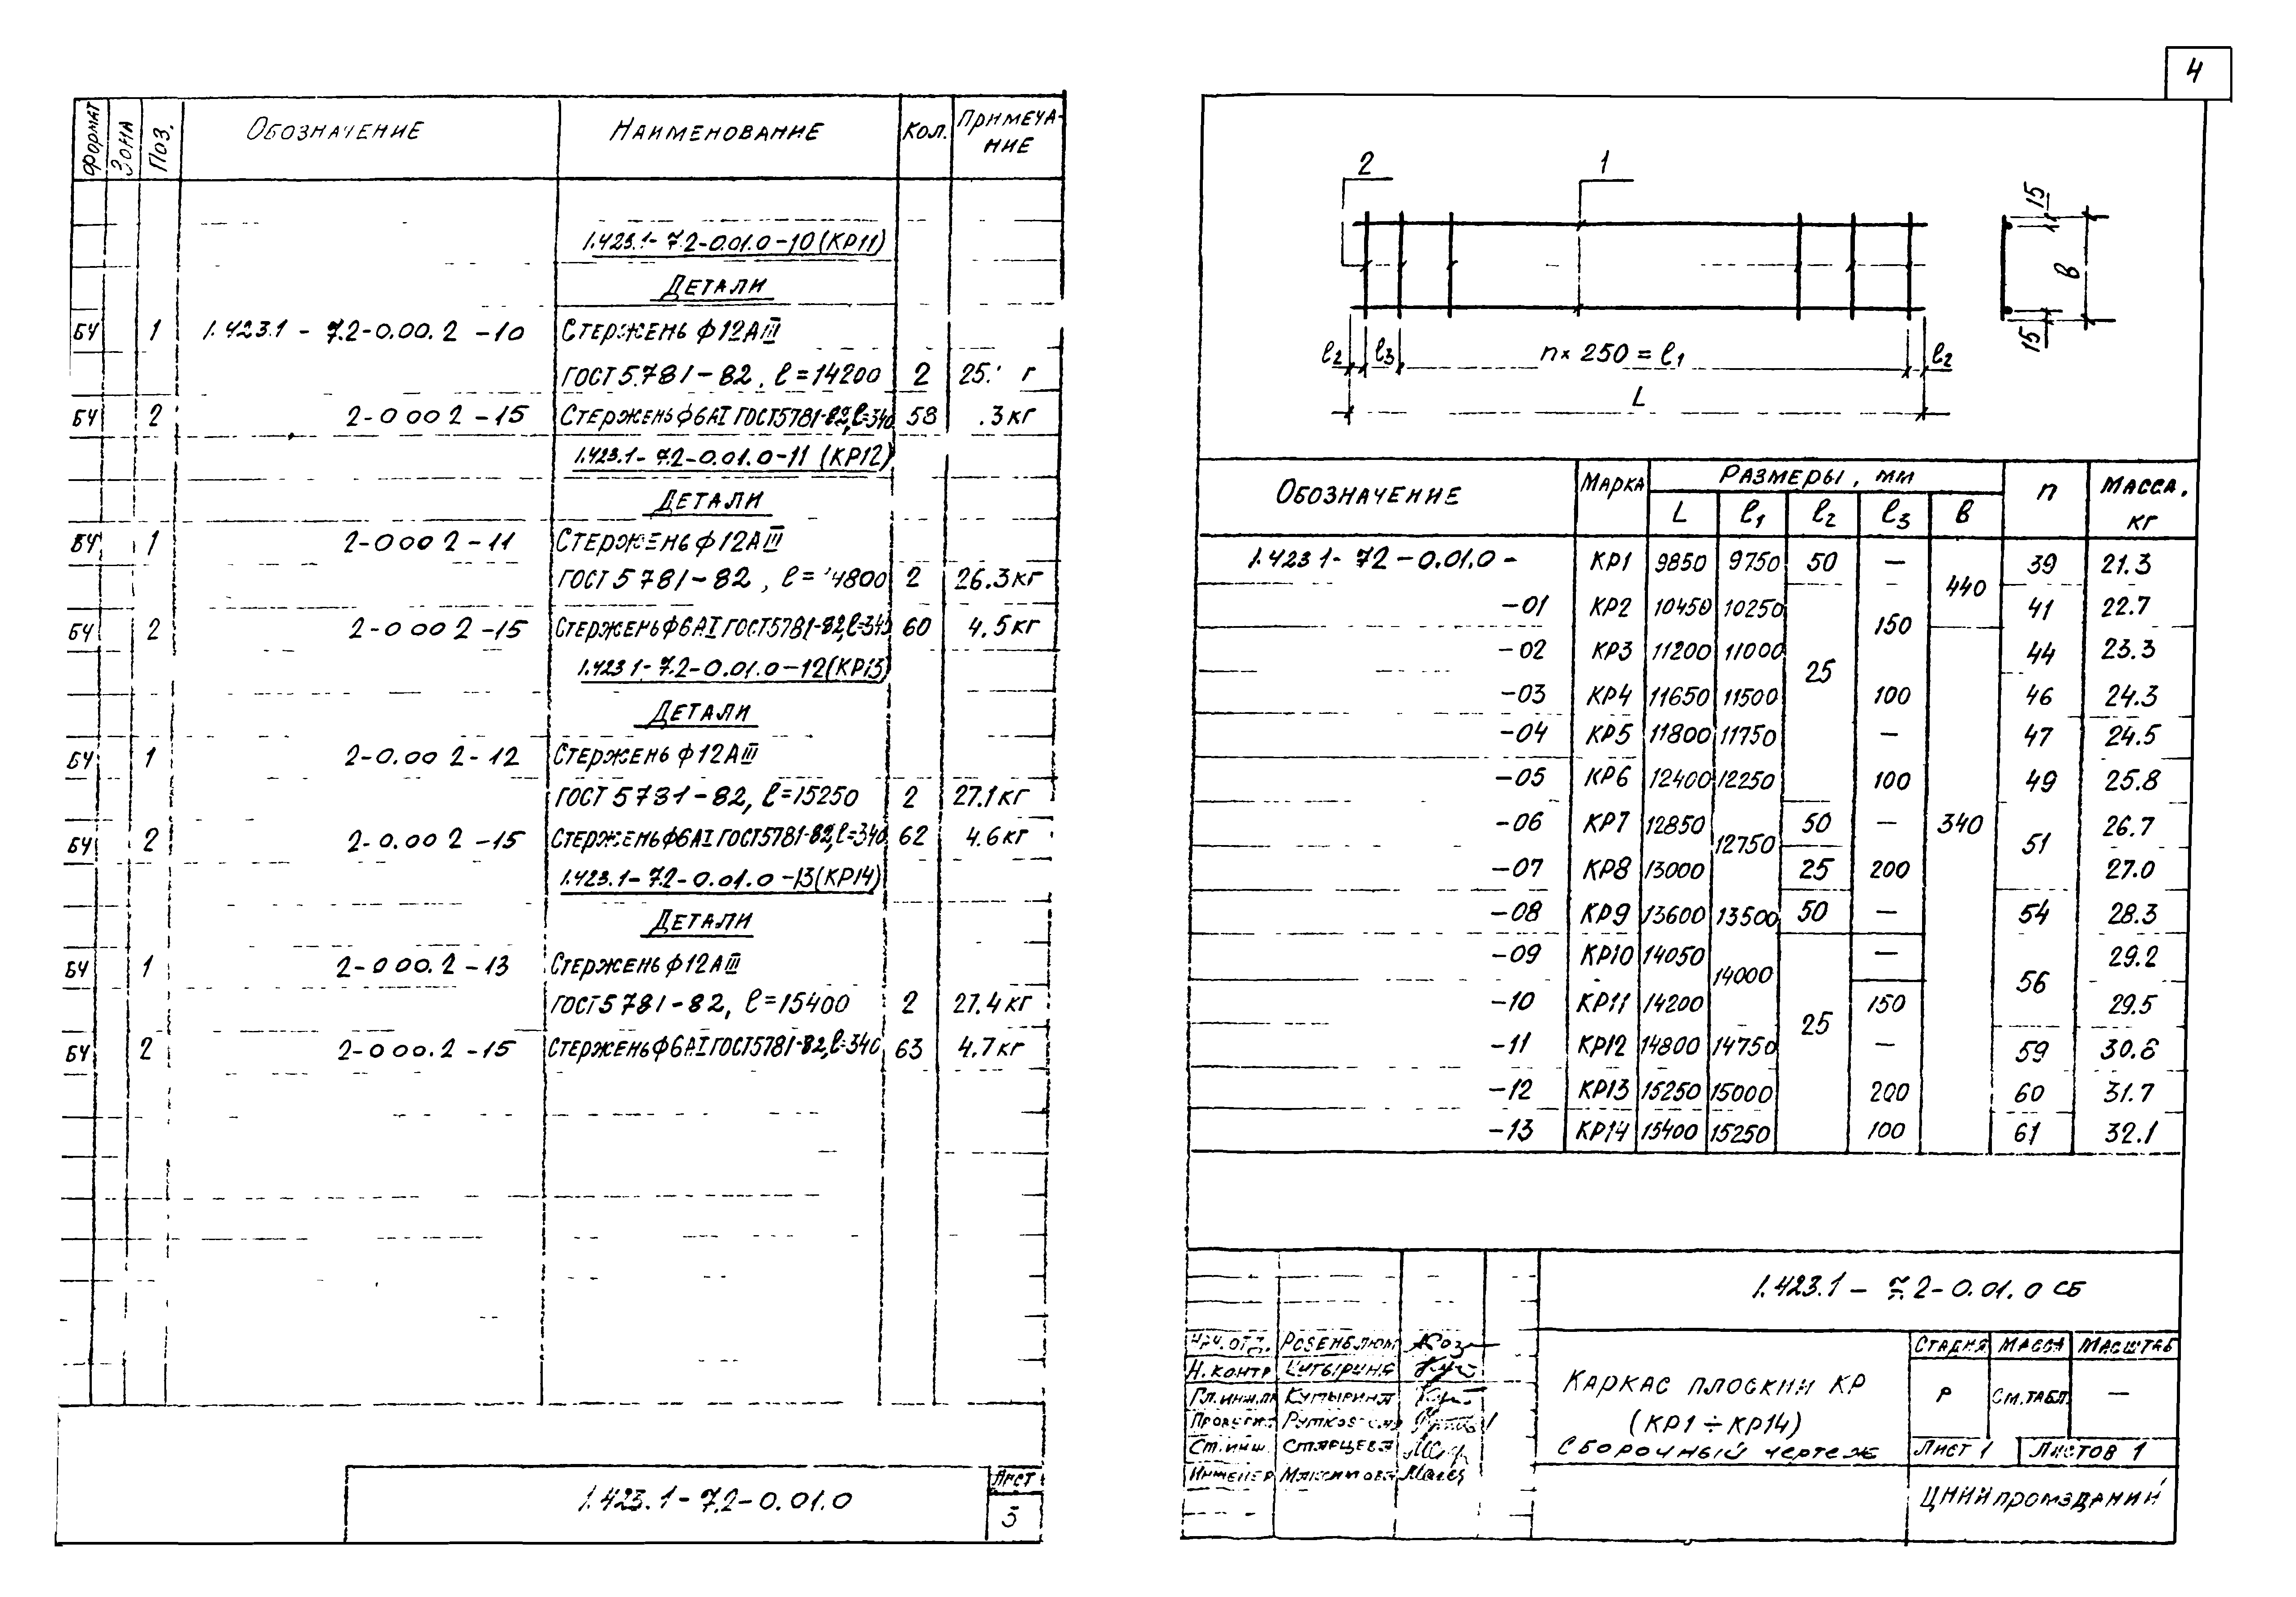 4
Формат Зона Поз. Обозначение Наименование Кол. Примеча-
ние
1.423.1-7.2-0.01.0-10(КР11)
Детали
БЧ 1 1.423.1-7.2-0.00.2-10 Стержень ф12АIII
ГОСТ 5781-82, ℓ=14200 2
БЧ 2 2-0002-15 Стержень ф6АI ГОСТ5781-82, ℓ=340 58 .3кг
1.423.1-7.2-0.01.0-11 (КР12)
Детали
БЧ 1 2-0002-11 Стержень ф12АIII
ГОСТ 5781-82, ℓ= 4800 2 26.3кг
БЧ 2 2-0002-15 Стержень ф6АI ГОСТ5781-82, ℓ=340 60 4.5кг
1.423.1-7.2-0.01.0-12(КР13)
Детали
БЧ 1 2-0.002-12 Стержень ф12АIII
ГОСТ 5781-82, ℓ=15250 2 27.1кг
БЧ 2 2-0.002-15 Стержень ф6АI ГОСТ5781-82, ℓ=340 62 4.6кг
1.423.1-7.2-0.01.0-13(КР14)
Детали
БЧ 1 2-000.2-13 Стержень ф12АIII
ГОСТ 5781-82, ℓ=15400 2 27.4кг
БЧ 2 2-000.2-15 Стержень ф6АI ГОСТ5781-82, ℓ=340 63 4.7кг
1.423.1-7.2-0.01.0
Лист
3
2 1
15
в
15
ℓ2 ℓ3 n×250=ℓ1 ℓ2
L
Обозначение Марка Размеры, мм n Масса,
кг
L ℓ1 ℓ2 ℓ3 в
1.423 1-72-0.01.0- КР1 9850 9750 50 — 440 39 21.3
-01 КР2 10450 10250 25 150 41 22.7
-02 КР3 11200 11000 340 44 23.3
-03 КР4 11650 11500 100 46 24.3
-04 КР5 11800 11750 — 47 24.5
-05 КР6 12400 12250 100 49 25.8
-06 КР7 12850 12750 50 — 51 26.7
-07 КР8 13000 25 200 27.0
-08 КР9 13600 13500 50 — 54 28.3
-09 КР10 14050 14000 25 — 56 29.2
-10 КР11 14200 150 29.5
-11 КР12 14800 14750 — 59
-12 КР13 15250 15000 200 60 31.7
-13 КР14 15400 15250 100 61 32.1
1.423.1-7.2-0.01.0 СБ
Нач.отд. Розенблюм
Н.контр Кутырина
Гл.инж.пр Кутырина
Ст.инж. Старцева
Инженер Максимова
Каркас плоский КР
(КР1÷КР14)
Сборочный чертеж
Стадия Масса Масштаб
Р См.табл. —
Лист 1 Листов 1
ЦНИИпромзданий